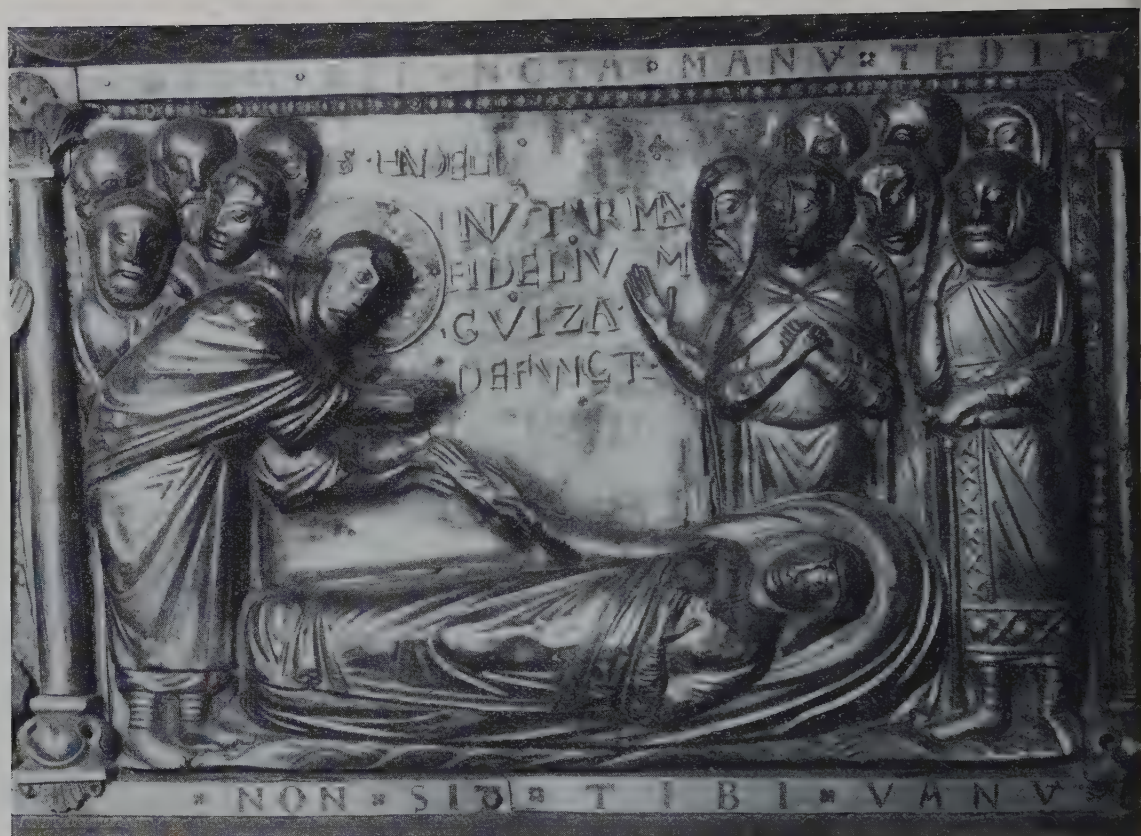 NCTA MANV TEDIT
S HADELI
INVITAR MA
FIDELIV M
GVIZA
DEFVNCT
NON SIT TIBI VANV